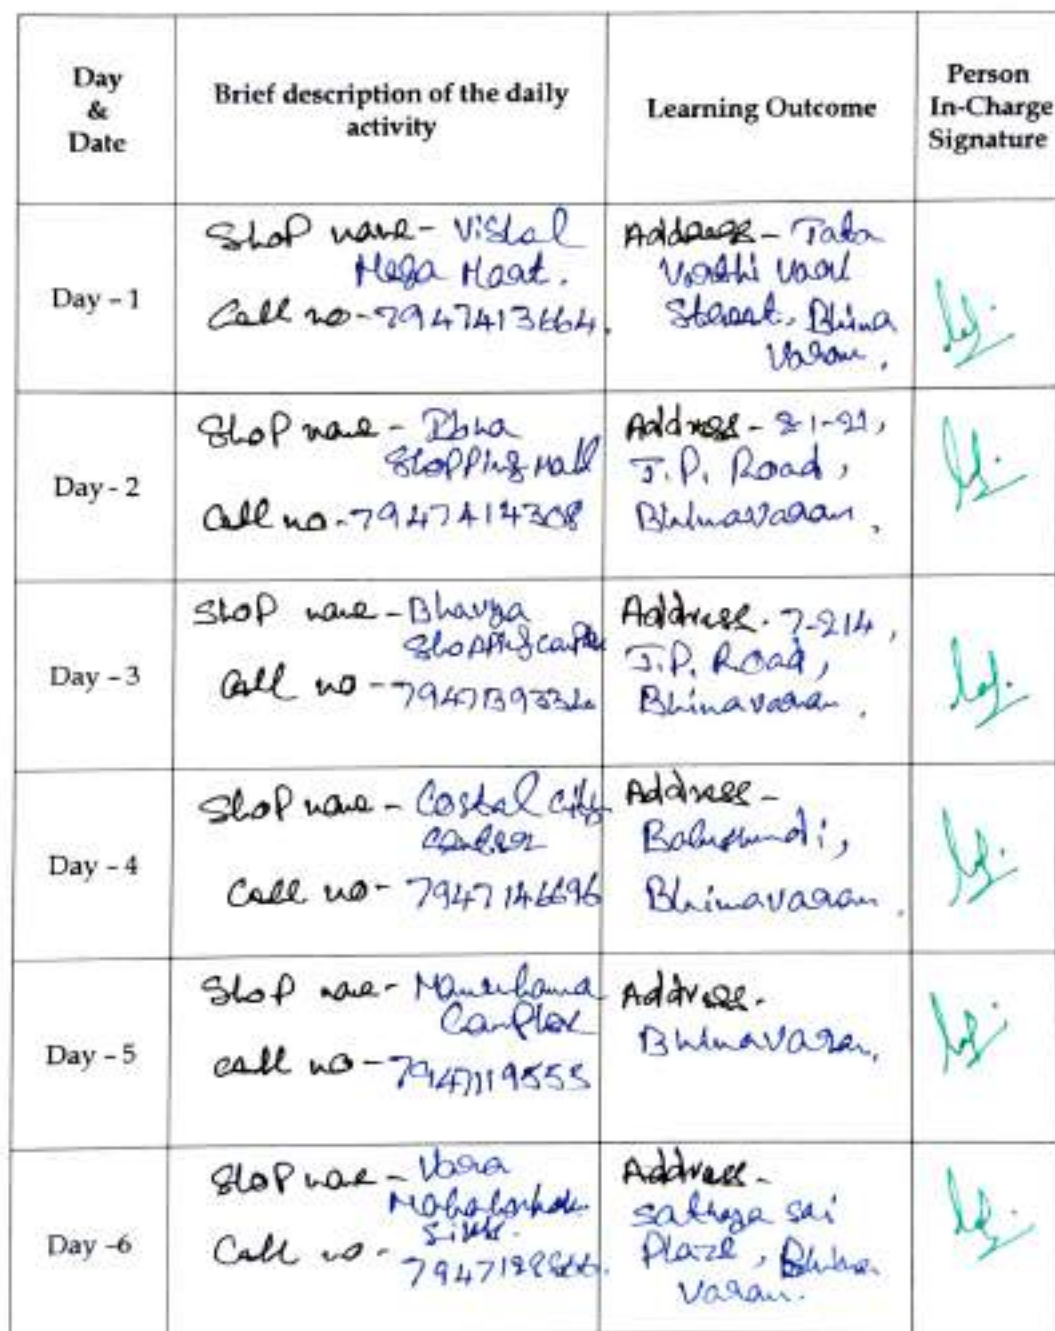 Day
&
Date
Brief description of the daily
activity
Learning Outcome
Person
In-Charge
Signature
Day - 1
Shop name - Vishal
Mega Mart.
Call no - 7947413664.
Address - Tata
Street, Bhima
Varam.
Day - 2
Shop name -
Shopping Mall
Call no - 7947414308
Address -
J.P. Road,
Bhimavaram,
Day - 3
Shop name - Bhavya
Shopping
Call no -
Address - 7-214,
J.P. Road,
Bhimavaram.
Day - 4
Shop name - Costal City
Center
Call no - 7947146696
Address -
Bhimavaram.
Day - 5
Shop name -
Complex
Call no - 7947119555
Address -
Bhimavaram.
Day -6
Shop name - Vara
Call no -
Address -
Sathya Sai
Plaza, Bhima
Varam.